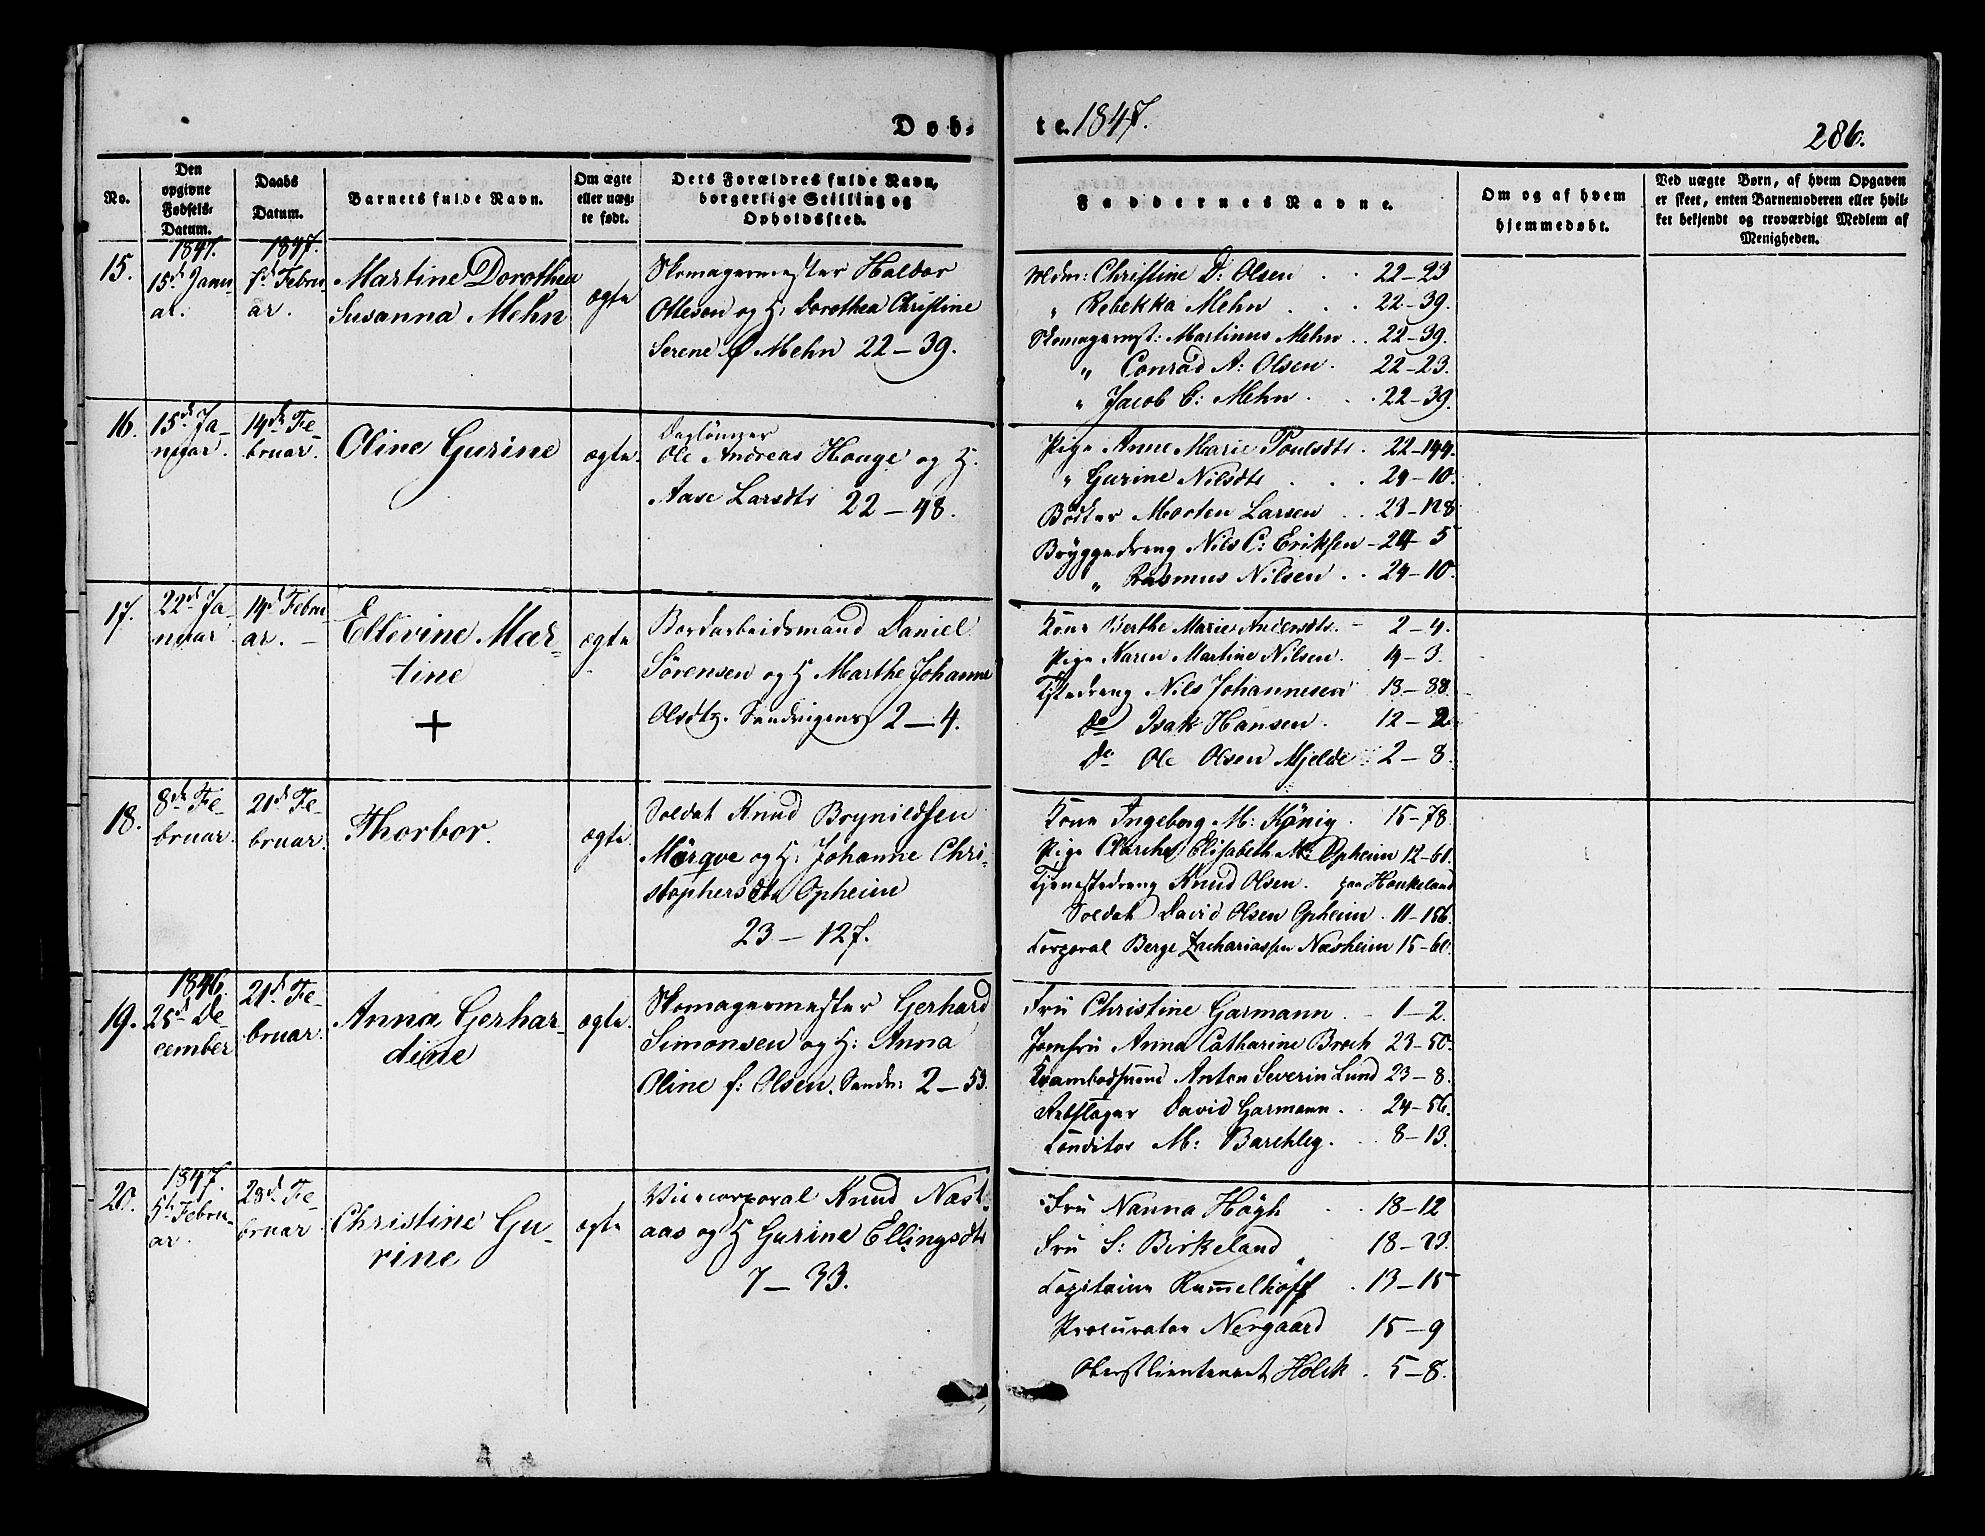 Døb-
te. 1847.
286.
No.
Den opgivne Fødsels-Datum.
Daabs Datum.
Barnets fulde Navn.
Om ægte eller uæg-te født.
Dets Forældres fulde Navn, borgerlige Stilling og Opholdssted.
Faddernes Navne.
Om og af hvem hjemmedøbt.
Ved uægte Børn, af hvem Opgaven er skeet, enten Barnemoderen eller hvil-ket bekjendt og troværdigt Medlem af Menigheden.
15.
1847.
15d Janu-
ar.
1847.
7d Febru-
ar.
Martine Dorothea
Susanna Mehn
ægte
Skomagermester Haldor
Ottesen og H. Dorothea Christine
Serene Mehn 22-39.
Mdm: Christine D: Olsen . . 22-23
" Rebekka Mehn . . 22-39.
Skomagermst: Martinus Mehn . . 22-39.
" Conrad A: Olsen . 22-23.
" Jacob C: Mehn . . 22-39.
16.
15d Ja-
nuar.
14d Fe-
bruar.
Oline Gurine
ægte.
Daglønner
Ole Andreas Hauge og H.
Aase Larsdtr 22-48.
Pige Anne Marie Poulsdtr . 22-144.
" Gurine Nilsdtr . . 24-10.
Bødker Morten Larsen . . 23-128
Bryggedreng Nils C: Eriksen - 24-5
" Rasmus Nilsen . . 24-10.
17.
22d Ja-
nuar
14d Febru-
ar. -
Ellevine Mar-
tine
+
ægte
Bordarbeidsmand Daniel
Sørensen og H Marthe Johanne
Olsdtr. Sandvigen 2-4.
Kone Berthe Marie Andersdtr. - 2-4.
Pige Karen Martine Nilsen. 4-3.
Tjstedreng Nils Johannesen 13-88.
Do Isak Hansen . 12-2.
Do Ole Olsen Mjelde 2-8.
18.
8d Fe-
bruar.
21d Fe-
bruar.
Thorbor.
ægte.
Soldat Knud Brynildsen
Mørqve og H. Johanne Chri-
stophersdtr Opheim
23-127.
Kone Ingeborg M: König . 15-78.
Pige Elisabeth M: Opheim 12-61.
Tjenestedreng Knud Olsen. paa Haukeland
Soldat David Olsen Opheim . 11-156.
Corporal Berge Zachariassen Næsheim 15-60.
19.
1846.
25d De-
cember
21d Fe-
bruar.
Anna Gerhar-
dine
ægte.
Skomagermester Gerhard
Simonsen og H: Anna
Oline f: Olsen. Sandv: 2-53.
Fru Christine Garmann. - 1-2.
Jomfru Anna Catharine Brock 23-50.
Krambodsvend Anton Severin Lund 23-8.
Rebslager David Garmann . . 24-56.
Conditor M: Barchley. . . 8-13.
20.
1847.
5t Febru-
ar.
28d Fe-
bruar
Christine Gu-
rine
ægte
Vicecorporal Knud Næst-
aas og H Gurine Ellingsdtr
7-33.
Fru Nanna Høgh . . 18-12
Fru S: Birkeland 18-23.
Capitaine Rummelhoff . 13-15
Procurator Nergaard 15-9
Oberstlieutenant Holck . 5-8.